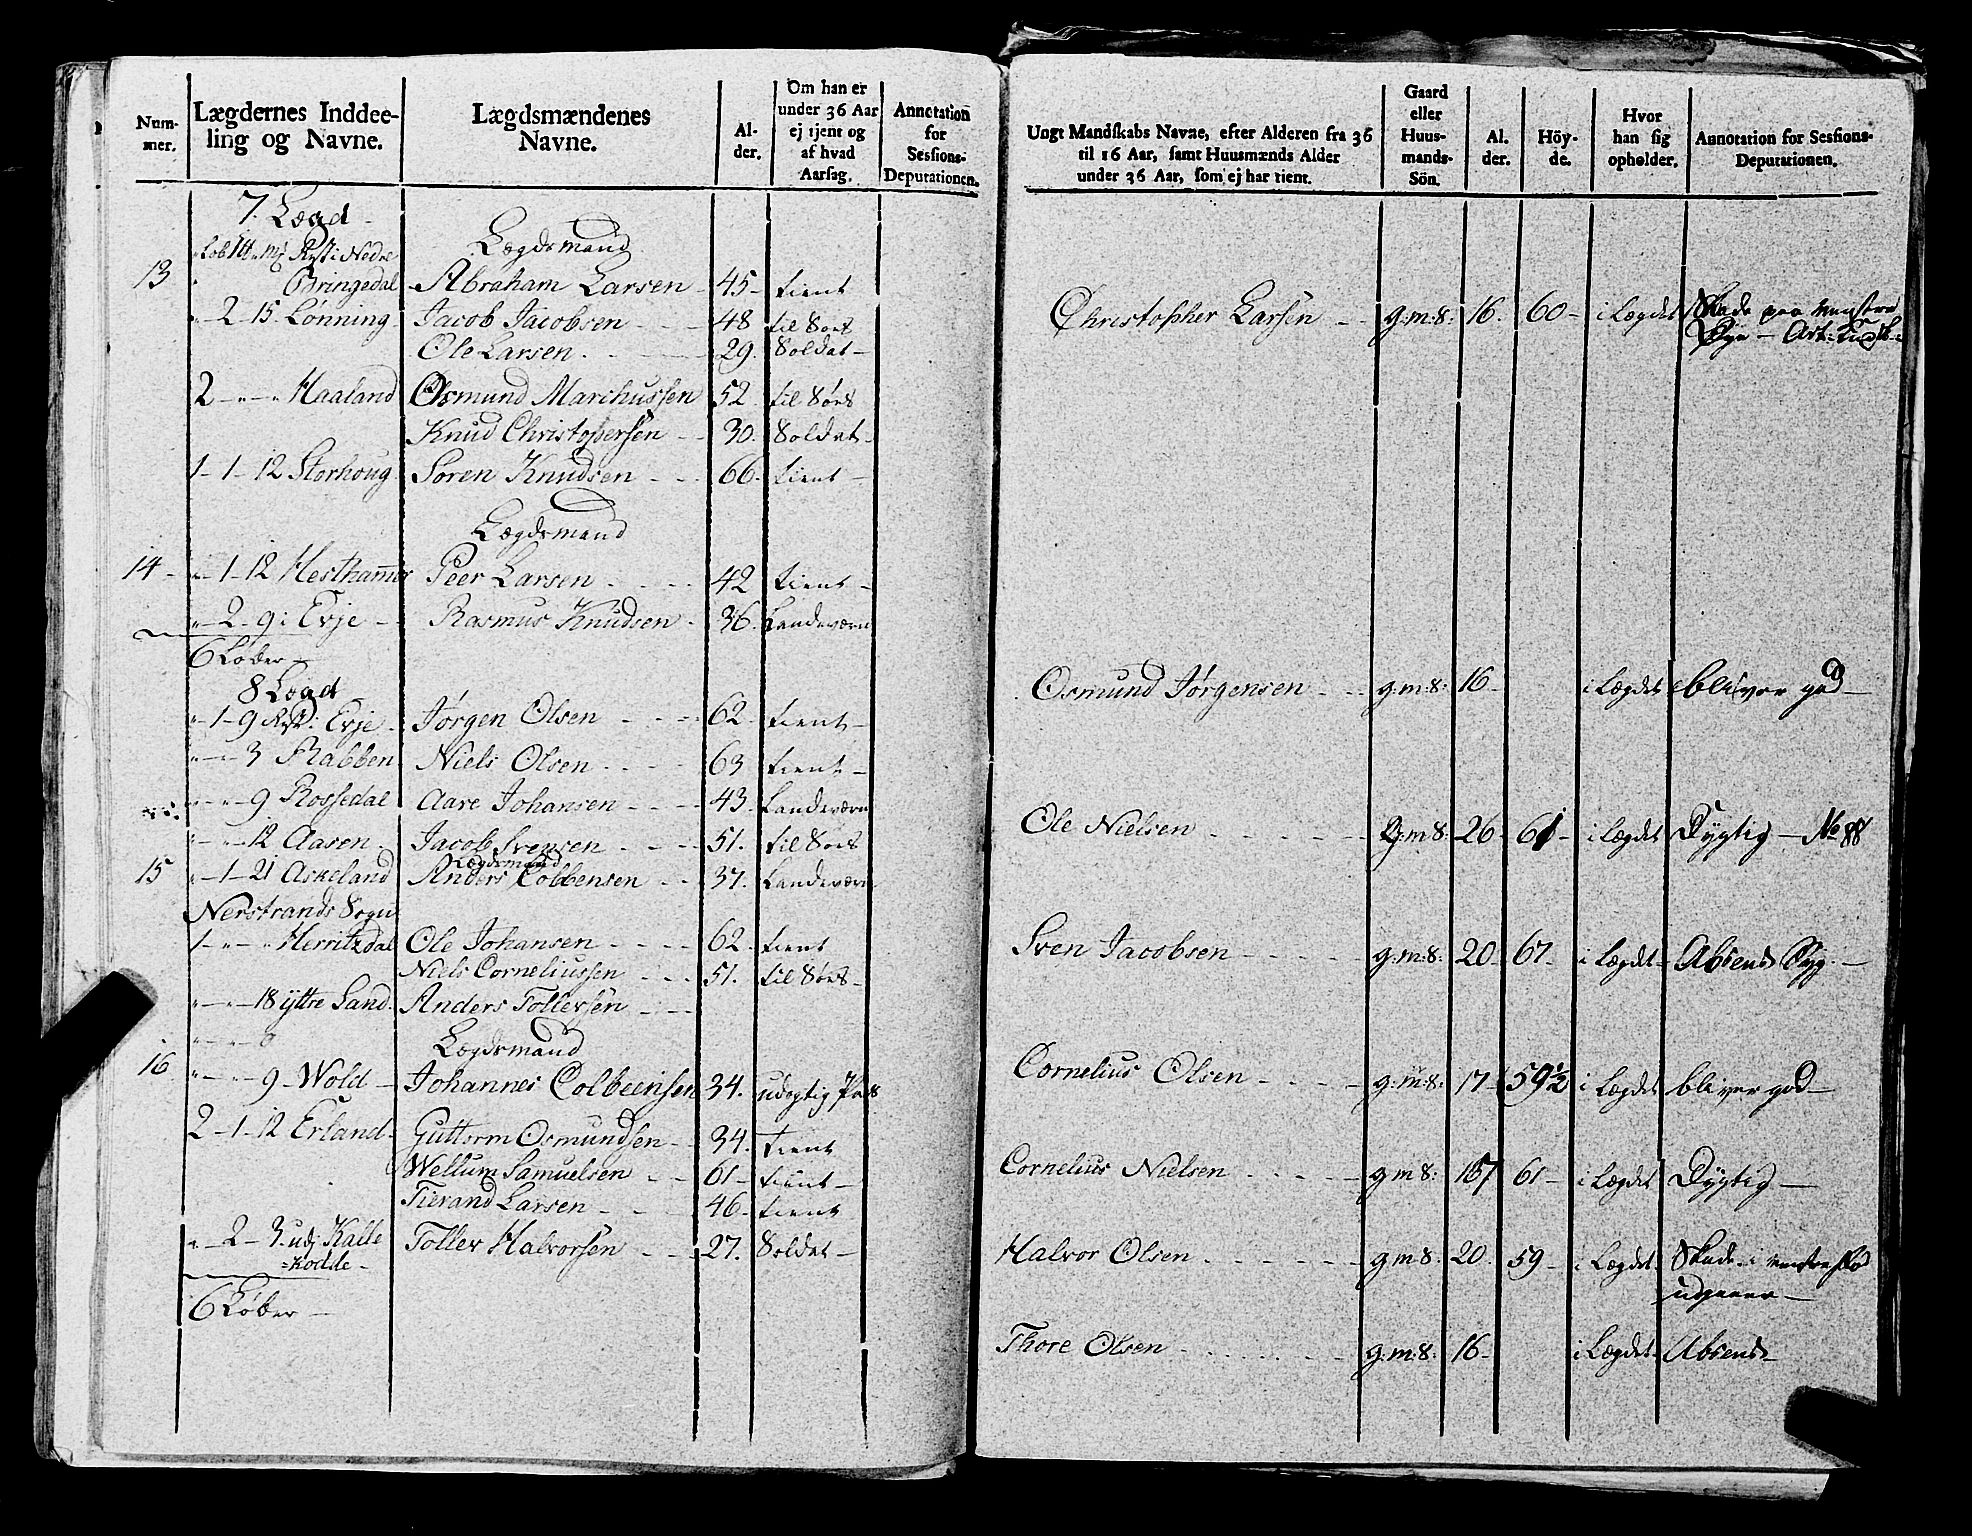 Num-
mer.
Lægdernes Inddee-
ling og Navne.
Lægdsmændenes
Navne.
Al-
der.
Om han er
under 36 Aar
ej tjent og
af hvad
Aarsag.
Annotation
for
Sessions-
Deputationen.
7. Lægd
Lægdsmand
13 Bringedal Abraham Larsen 45 tient
2 - 15 Lønning Jacob Jacobsen 48 til Søes
Ole Larsen 29. Soldat
2 Haaland Osmund Marchussen 52 til Søes
Knud Christophersen 30. Soldat
1 - 1 - 12 Storhoug Soren Knudsen 66 tient
Lægdsmand
14 1 - 12 Hesthammer Peer Larsen 42 tient
2 - 9 Evje Rasmus Knudsen 36. Landeværn
6 Løber
8 Lægd
1 - 9 Evje Jørgen Olsen 62 tient
3 Rabben Niels Olsen 63 tient
9 Rossedal Aare Johansen 43 Landeværn
12 Aasen Jacob Svensen 51. til Søes
Lægdsmand
15 1 - 21 Askeland Anders Colbensen 37. Landeværn
Nerstrands Sogn
1 Herritzdal Ole Johansen 62 tient
Niels Corneliussen 51. til Søes
18 ytre Sand Anders Tollevsen
Lægdsmand
16 9 Wold Johannes Colbeensen 34. udygtig
2 - 1 - 12 Erland Guttorm Osmundsen 34. tient
Wellum Samuelsen 61 tient
Tierand Larsen 46 tient
2 - 3 Kalle
=kodde Tollev Halvorsen 27. Soldat
6 Løber
Ungt Mandskabs Navne, efter Alderen fra 36
til 16 Aar, samt Huusmænds Alder
under 36 Aar, som ej har tient.
Gaard
eller
Huus-
mands-
Sön.
Al.
der.
Höy-
de.
Hvor
han sig
opholder.
Annotation for Sessions-
Deputationen.
Christopher Larsen g:m:s: 16. 60 i Lægdet Skade paa venstre
Øye
Osmund Jørgensen g:m:s: 16 i Lægdet bliver god
Ole Nielsen g:m:s: 26 61 i Lægdet Dygtig No 88
Sven Jacobsen g:m:s: 20 67 i Lægdet Absend
Cornelius Olsen g:m:s: 17 59 1/2 i Lægdet bliver god
Cornelius Nielsen g m s: 61 i Lægdet Dygtig
Halvor Olsen g m s: 20 59 i Lægdet Skade i venstre
udgaaer
Thore Olsen g:m:s: 16 i Lægdet Absend